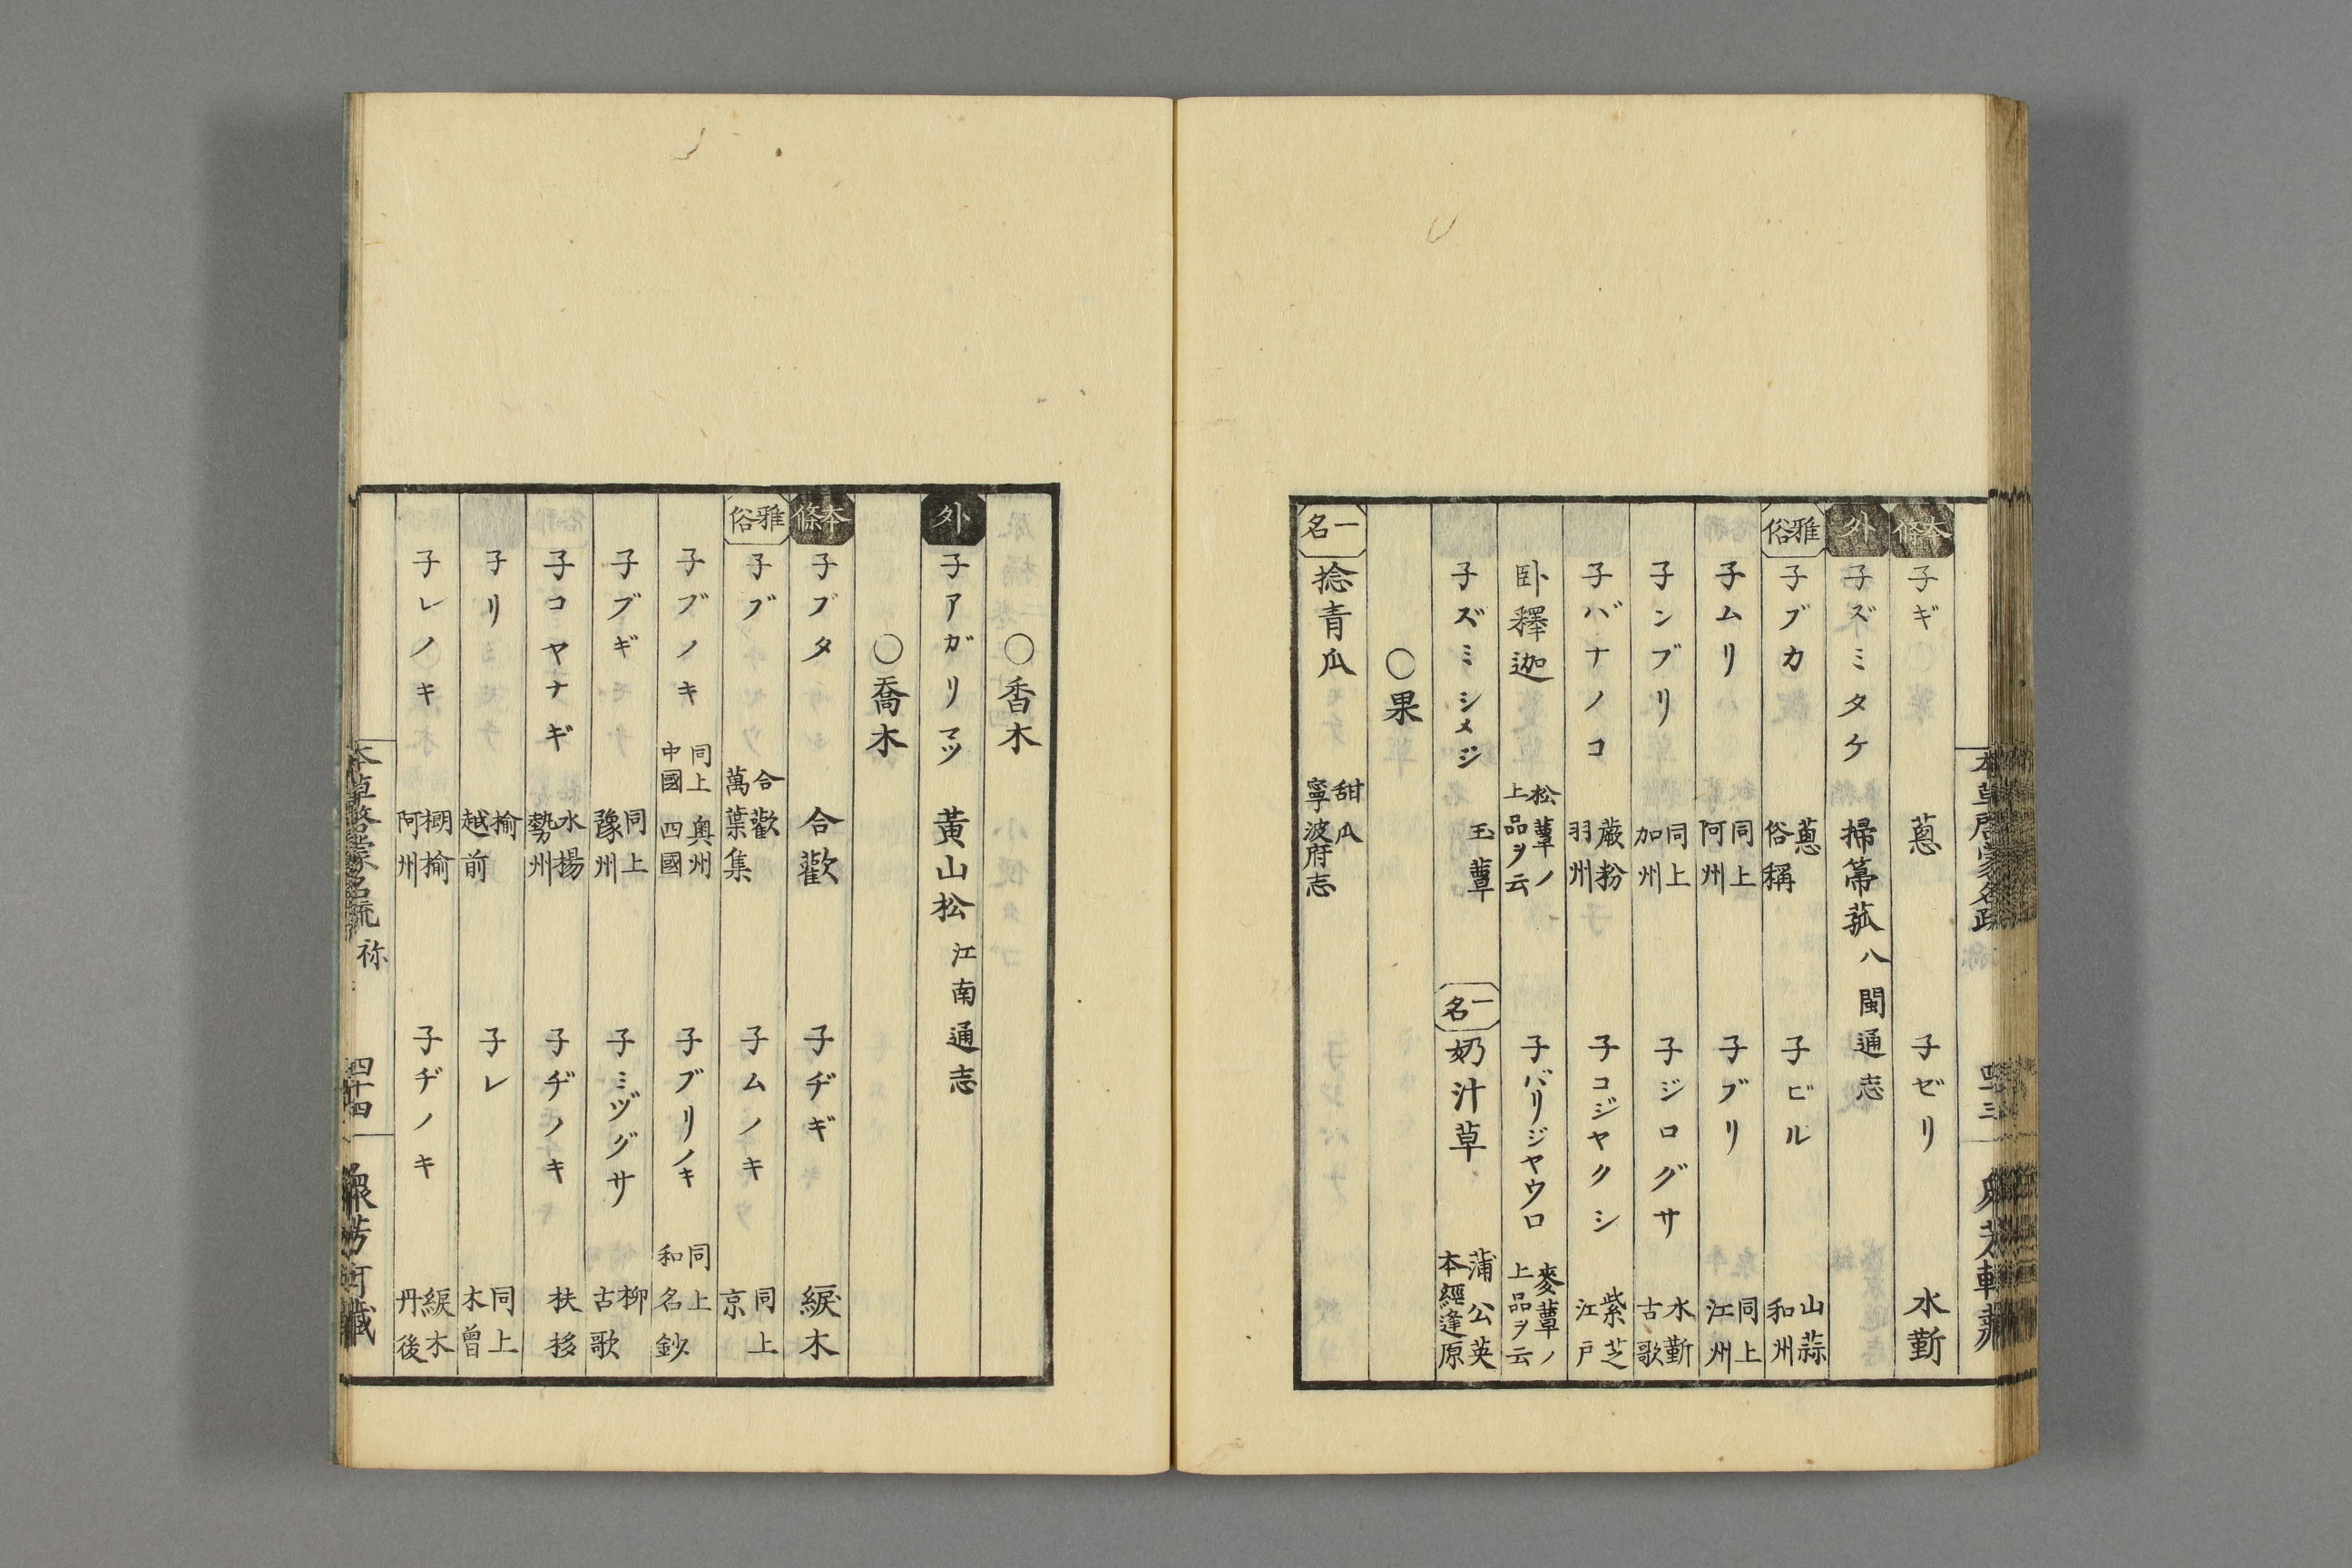 本條 子ギ 葱 子ゼリ 水蘄
外 子ズミタケ 掃箒菰 八閩通志
雅俗 子ブカ 葱 俗稱 子ビル 山蒜 和州
子ムリ 同上 阿州 子ブリ 同上 江州
子ンブリ 同上 加州 子ジログサ 水蘄 古歌
子バナノコ 蕨粉 羽州 子コジヤクシ 紫芝 江戸
卧釋迦 松蕈ノ上品ヲ云 子バリジヤウロ 麥蕈ノ上品ヲ云
子ズミシメジ 玉蕈 一名 奶汁草 蒲公英 本經逢原
〇果
一名 捻青瓜 甜瓜 寧波府志
〇香木
外 子アガリマツ 黃山松 江南通志
〇喬木
本條 子ブタ 合歡 子ヂギ 綟木
雅俗 子ブ 合歡 萬葉集 子ムノキ 同上 京
子ブノキ 同上 奥州 中國 四國 子ブリノキ 同上 和名鈔
子ブギ 同上 豫州 子ミヅグサ 柳 古歌
子コヤナギ 水楊 勢州 子ヂノキ 扶栘
子リ 榆 越前 子レ 同上 木曾
子レノキ 榔榆 阿州 子ヂノキ 綟木 丹後
本草啓蒙名疏 祢 四十四